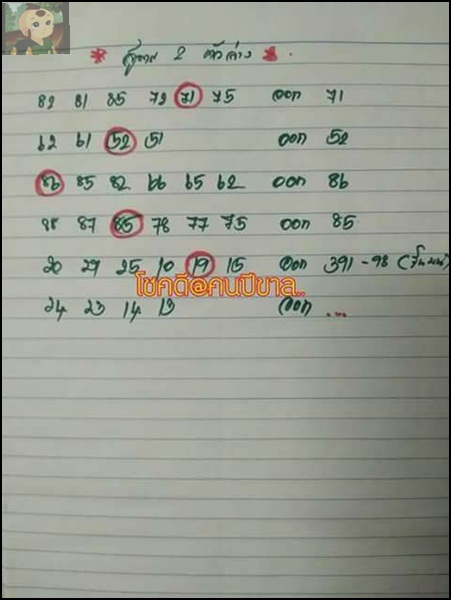 * สูตร 2 ตัวล่าง *
82 81 85 72 71 75 ออก 71
62 61 52 51 ออก 52
86 85 82 66 65 62 ออก 86
88 87 85 78 77 75 ออก 85
20 29 25 10 19 15 ออก 391 - 98
โชคดี@คนปีขาล..
24 23 14 13 ออก ...